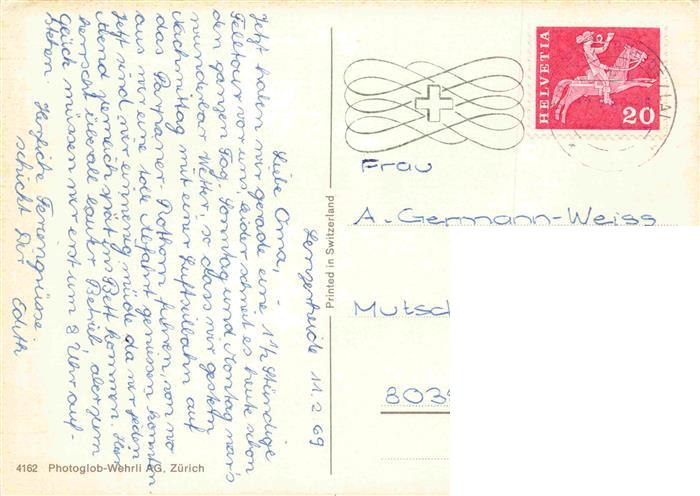 Lenzerheide 11.2.69
Liebe Oma, –
Jetzt haben wir gerade eine 1½ stündige
Felltour vor uns. Leider schneit es heute schon
den ganzen Tag. Sonntag und Montag war's
wunderbar Wetter, so dass wir gestern
Nachmittag mit einer Luftseilbahn auf
das Parpaner-Rothorn fuhren, von wo
aus wir eine tolle Abfahrt geniessen konnten.
Jetzt sind wir müde, da wir jeden
Abend ziemlich spät ins Bett kommen. Hier
herrscht überall lauter Betrieb, aber zum
Glück müssen wir erst um 8 Uhr auf-
stehen. Herzliche Feriengrüsse
schickt Dir Edith
4162 Photoglob-Wehrli AG, Zürich
Printed in Switzerland
HELVETIA
20
Frau
A. Germann-Weiss
Mutsch
803